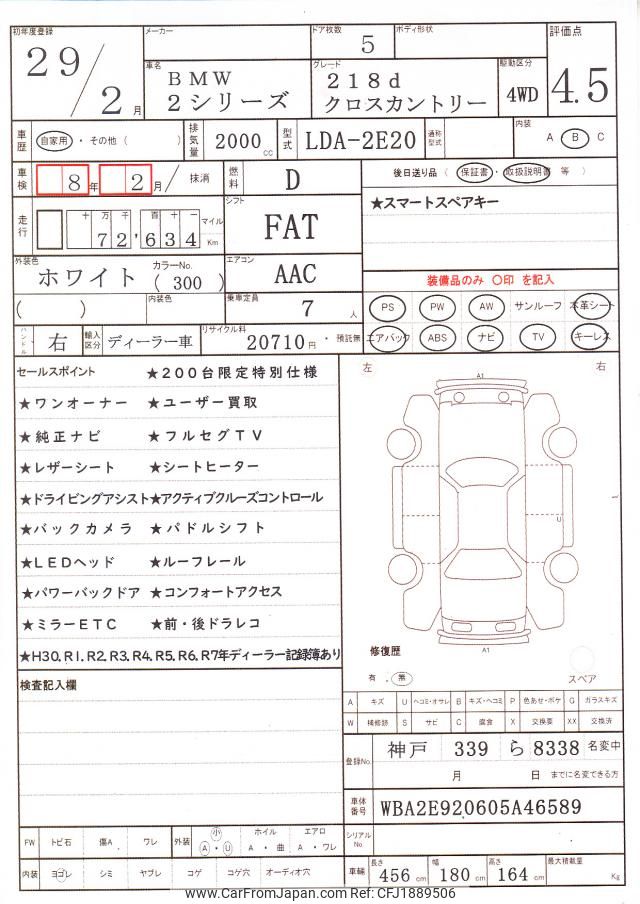 初年度登録
29/2月
メーカー
ドア枚数 5
ボディ形状
評価点 4.5
車名 BMW 2シリーズ
グレード 218d クロスカントリー
駆動区分 4WD
車歴 自家用・その他( )
排気量 2000cc
型式 LDA-2E20
通称型式
内装 A B C
車検 8年 2月/抹消
燃料 D
後日送り品(保証書・取扱説明書 等)
★スマートスペアキー
走行 十万千百十一 72,634 マイル Km
シフト FAT
外装色 ホワイト
カラーNo. (300)
エアコン AAC
装備品のみ 〇印 を記入
( )
内装色
乗車定員 7人
PS PW AW サンルーフ 本革シート
エアバック ABS ナビ TV キーレス
ハンドル 右
輸入区分 ディーラー車
リサイクル料 20710円・預託無
セールスポイント ★200台限定特別仕様
★ワンオーナー ★ユーザー買取
★純正ナビ ★フルセグTV
★レザーシート ★シートヒーター
★ドライビングアシスト★アクティブクルーズコントロール
★バックカメラ ★パドルシフト
★LEDヘッド ★ルーフレール
★パワーバックドア ★コンフォートアクセス
★ミラーETC ★前・後ドラレコ
★H30.R1.R2.R3.R4.R5.R6.R7年ディーラー記録簿あり
左 右
A1
U
A1
修復歴
有 . 無
スペア
検査記入欄
A キズ U ヘコミ・オサレ B キズ・ヘコミ P 色あせ・ボケ G ガラスキズ
W 補修跡 S サビ C 腐食 X 交換要 XX 交換済
登録No. 神戸 339 ら 8338 名変中
月 日 までに名変できる方
車体番号 WBA2E920605A46589
シリアルNo
FW トビ石 傷A ワレ 外装 小 A・U ホイル A・曲 エアロ A・ワレ
内装 ヨゴレ シミ ヤブレ コゲ コゲ穴 オーディオ穴
車輛 長さ 456cm 幅 180cm 高さ 164cm 最大積載量 Kg
www.CarFromJapan.com Ref: CFJ1889506